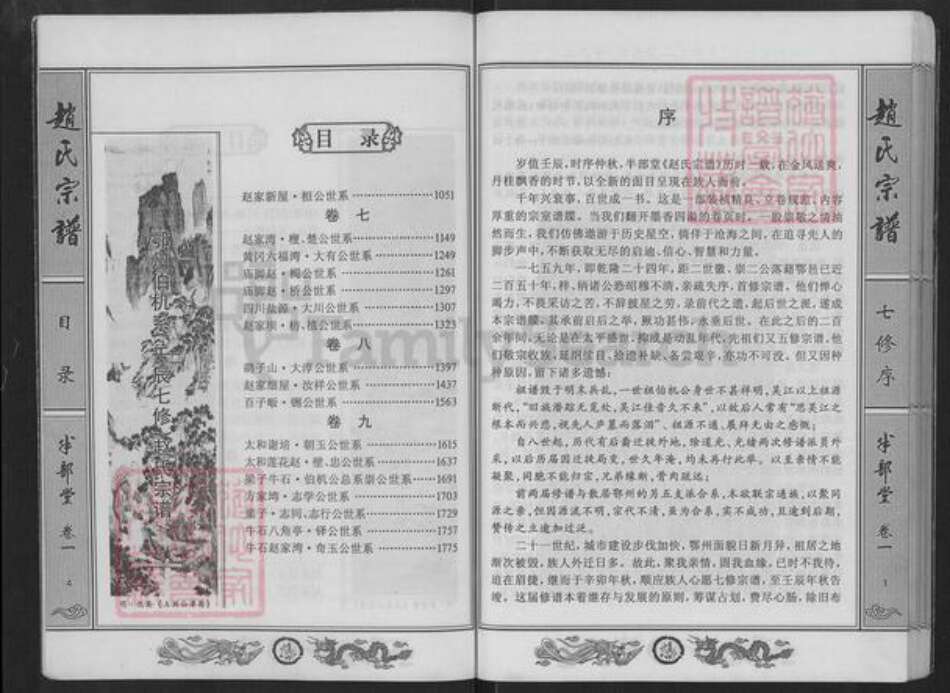 趙氏宗譜
目录
半部堂
卷一
目 录
赵家新屋·相公世系 1051
卷 七
赵家湾·檀、楚公世系 1149
黄冈六福湾·大有公世系 1249
庙脚赵·榈公世系 1261
庙脚赵·桥公世系 1297
四川盐源·大川公世系 1307
赵家坝·枋、植公世系 1323
卷 八
鹞子山·大淳公世系 1397
赵家细屋·汝样公世系 1437
百子畈·德公世系 1563
卷 九
太和谢培·朝玉公世系 1615
太和莲花赵·璧、忠公世系 1637
梁子牛石·伯机公总系崇公世系 1691
方家垴·志学公世系 1703
董子·志同、志行公世系 1729
牛石八角亭·铎公世系 1757
牛石赵家湾·奇玉公世系 1775
序
岁值壬辰，时序仲秋，半部堂《赵氏宗谱》历时一载，在金风送爽，
丹桂飘香的时节，以全新的面目呈现在族人面前。
千年兴衰事，百世成一书。这是一部装帧精良、立卷规范、内容
厚重的宗室谱牒。当我们翻开墨香四溢的卷页时，一股崇敬之情油
然而生，我们仿佛遨游于历史星空，徜徉于沧海之间，在追寻先人的
脚步声中，不断获取无尽的启迪、信心、智慧和力量。
一七五九年，即乾隆二十四年，距二世徽、崇二公落籍鄂邑已近
二百五十年，梓、纳诸公恐昭穆不清，亲疏失序，首修宗谱。他们惮心
竭力，不畏采访之苦，不辞披星之劳，录前代之遗，起后世之派，遂成
本宗谱牒，其承前启后之举，厥功甚伟，永垂后世。在此之后的二百
余年间，无论是在太平盛世，抑或是动乱年代，先祖们又五修宗谱，他
们敬宗收族，延纲续目，拾遗补缺、备尝艰辛，亦功不可没。但又因种
种原因，留下诸多遗憾：
祖谱毁于明末兵乱，一世祖伯机公身世不甚祥明，吴江以上祖源
断代，“旧族潜踪无觅处，吴江佳音久不来”，以故后人常有“思吴江之
根本而兴悲，视先人庐墓而落泪”、祖源不通、展拜无由之感慨；
自八世起，历代有后裔迁徙外地，除道光、光绪两次修谱派员外
采，以后历届因迁徙局变，世久年淹，均未再行此举。以至亲情不能
凝聚，同胞不能归宗，兄弟缘断，骨肉疏远；
前两届修谱与散居鄂州的另五支派合系，本欲联宗通族，以聚同
源之亲，但因源流不明，宗代不清，虽为合系，实不成功，且逾到后期，
赞传之主逾加过泛。
二十一世纪，城市建设步伐加快，鄂州面貌日新月异，祖居之地
渐次被毁，族人外迁日多。故此，聚我亲情，固我血缘，已时不我待，
迫在眉捷，继而于辛卯年秋，顺应族人心愿七修宗谱，至壬辰年秋告
竣。这届修谱本着继存与发展的原则，筹谋占划，费尽心肠，除旧布
趙氏宗譜
七修序
半部堂
卷一